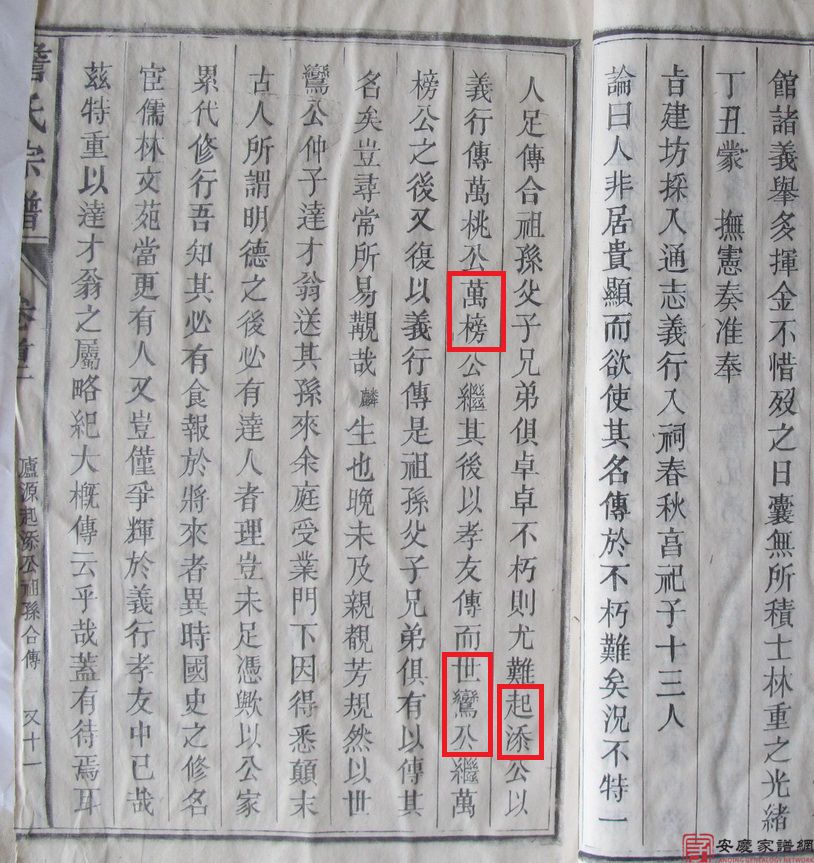 館諸義舉多揮金不惜歿之日囊無所積士林重之光緒
丁丑蒙　撫憲奏准奉
旨建坊採入通志義行入祠春秋享祀子十三人
論曰人非居貴顯而欲使其名傳於不朽難矣況不特一
人足傳合祖孫父子兄弟俱卓卓不朽則尤難起添公以
義行傳萬桃公萬榜公繼其後以孝友傳而世鸞公繼萬
榜公之後又復以義行傳是祖孫父子兄弟俱有以傳其
名矣豈尋常所易覯哉麟生也晚未及親覩芳規然以世
鸞公仲子達才翁送其孫來余庭受業門下因得悉顛末
古人所謂明德之後必有達人者理豈未足憑歟以公家
累代修行吾知其必有食報於將來者異時國史之修名
宦儒林文苑當更有人又豈僅爭輝於義行孝友中已哉
茲特重以達才翁之屬略紀大概傳云乎哉蓋有待焉耳
詹氏宗譜
卷首
廬源起添公祖孫合傳
又十一
安慶家譜網
ANQING GENEALOGY NETWORK